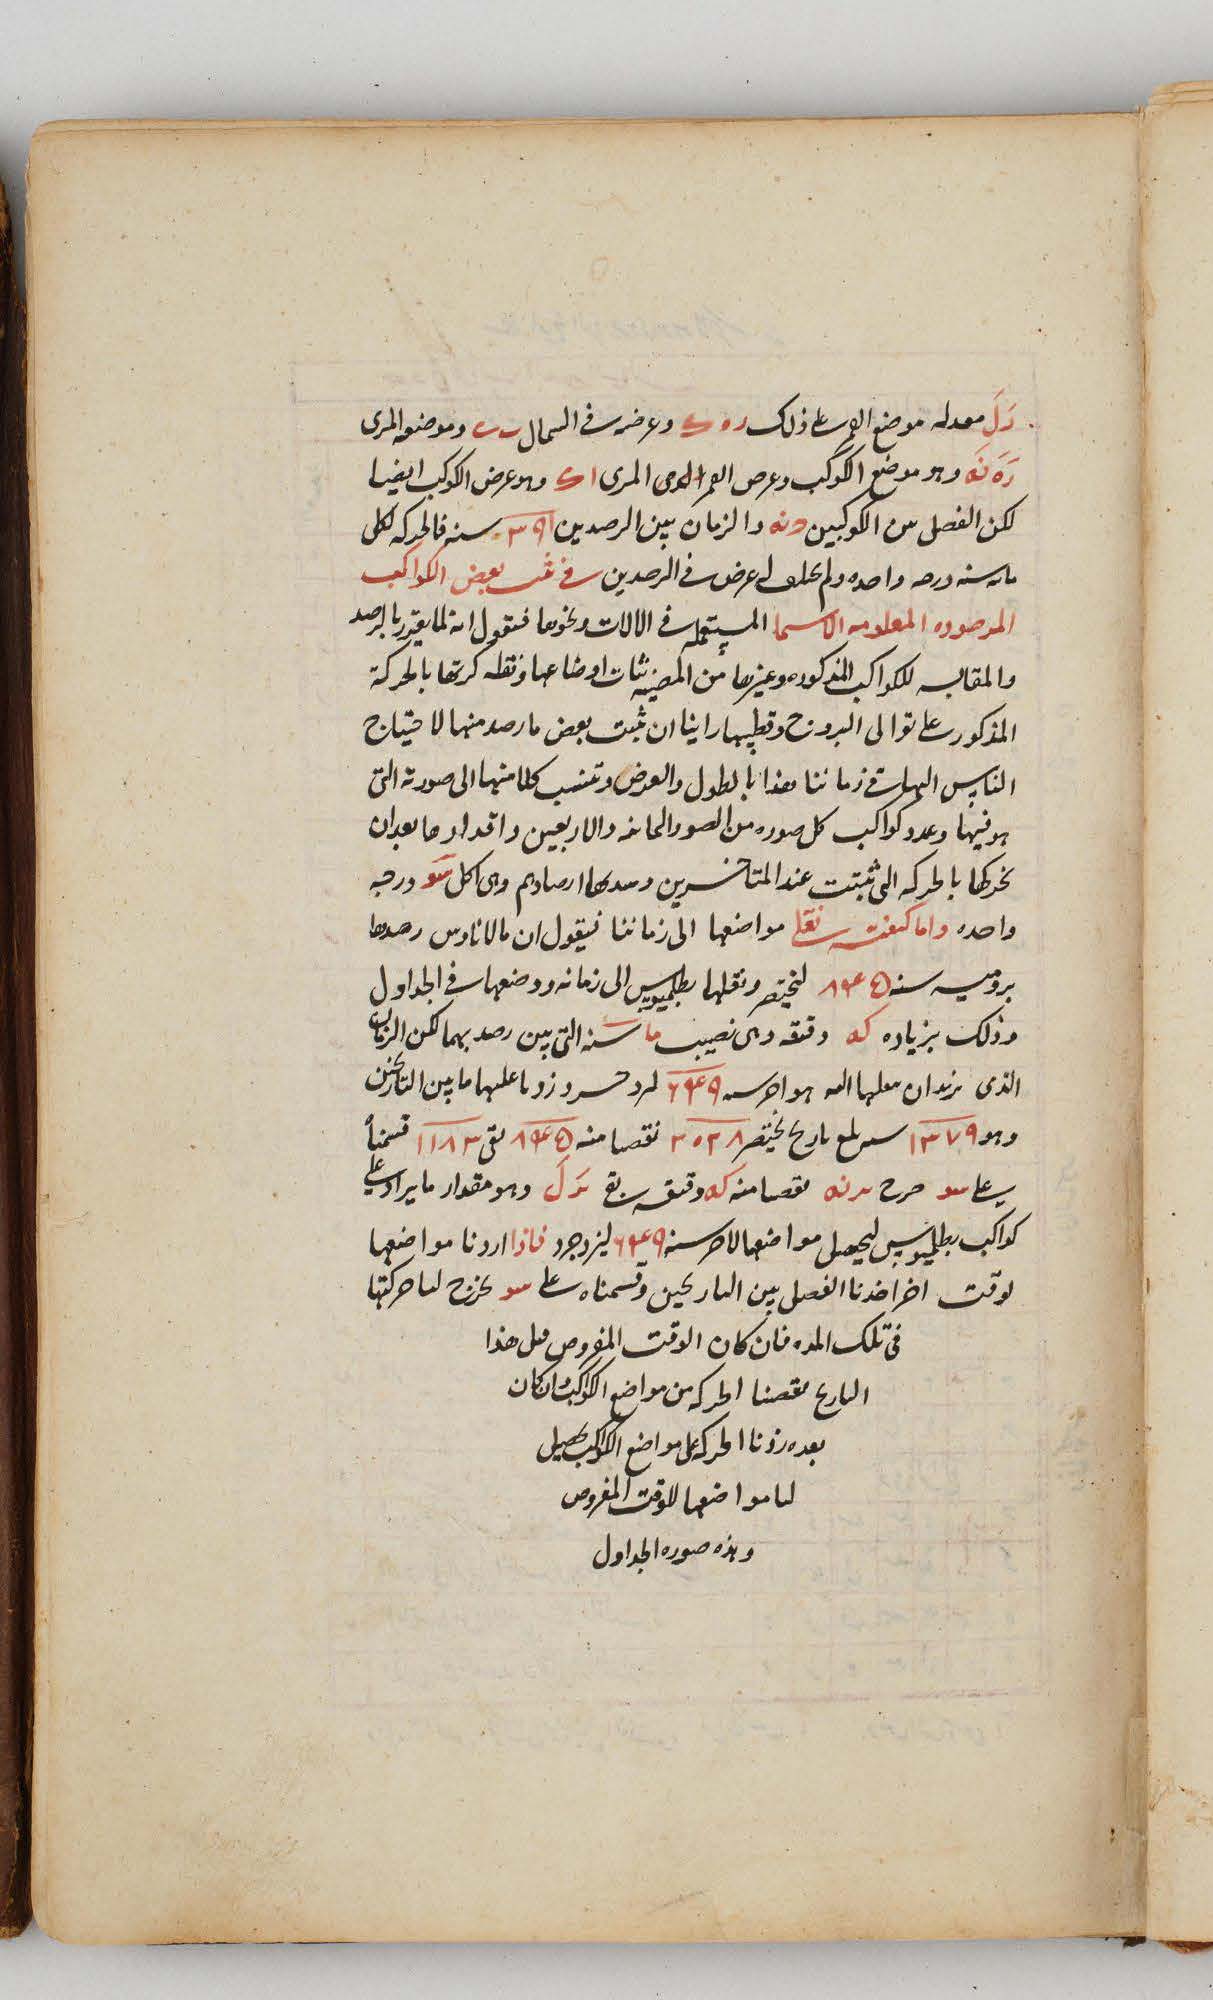 رل معدله موضع القمر على ذلك ر ه ك وعرضه فى الشمال ب ب وموضعه المرى
ره نه وهو موضع الكوكب وعرض القمر المرى ا ك وهو عرض الكوكب ايضا
لكن الفصل بين الكوكبين ونه والزمان بين الرصدين ٣٩١ سنه فالحركه لكل
مايه سنه درجه واحده ولم يختلف له عرض فى الرصدين فى ثبت بعض الكواكب
المرصوده المعلومه الاسما المستعمله فى الالات ونحوها فنقول انه لما يقرر بالرصد
والمقايسه للكواكب المذكوره وغيرها من المضيه ثبات اوضاعها ونقله كرتها بالحركة
المذكور على توالى البروج وقطبيها راينا ان نثبت بعض ما رصد منها لاحتياج
الناس اليها فى زماننا هذا بالطول والعرض وننسب كلا منها الى صورته التى
هو فيها وعدد كواكب كل صوره من الصور الثمانيه والاربعين واقدارها بعد ان
نحركها بالحركه التى ثبتت عند المتاخرين وشهدها ارصادهم وهى لكل سو درجه
واحده واما كيفيته نقل مواضعها الى زماننا فنقول ان مالاناوس رصدها
بروميه سنه ٨٤٥ لبختنصر ونقلها بطلميوس الى زمانه ووضعها فى الجداول
وذلك بزياده كه دقيقه وهى نصيب ما سنه التى بين رصديهما لكن الزمان
الذى نريد ان ننقلها اليه هو اخر سنه ٦٤٩ ليزدجرد زدنا عليها ما بين التاريخين
وهو ١٣٧٩ سنين بلغ تاريخ بختنصر ٢٠٢٨ نقصنا منه ٨٤٥ بقى ١١٨٣ قسمناه
على سو خرج نقصنا منه كه دقيقه بقى يزل وهو مقدار ما يراد على
كواكب بطلميوس ليحصل مواضعها لاخر سنه ٦٤٩ ليزدجرد فاذا اردنا مواضعها
لوقت اخر اخذنا الفصل بين التاريخين وقسمناه على سو يخرج لنا حركتها
فى تلك المده فان كان الوقت المفروض قبل هذا
التاريخ نقصنا الحركه من مواضع الكواكب وان كان
بعده زدنا الحركه على مواضع الكواكب يحصل
لنا مواضعها للوقت المفروض
وهذه صوره الجداول